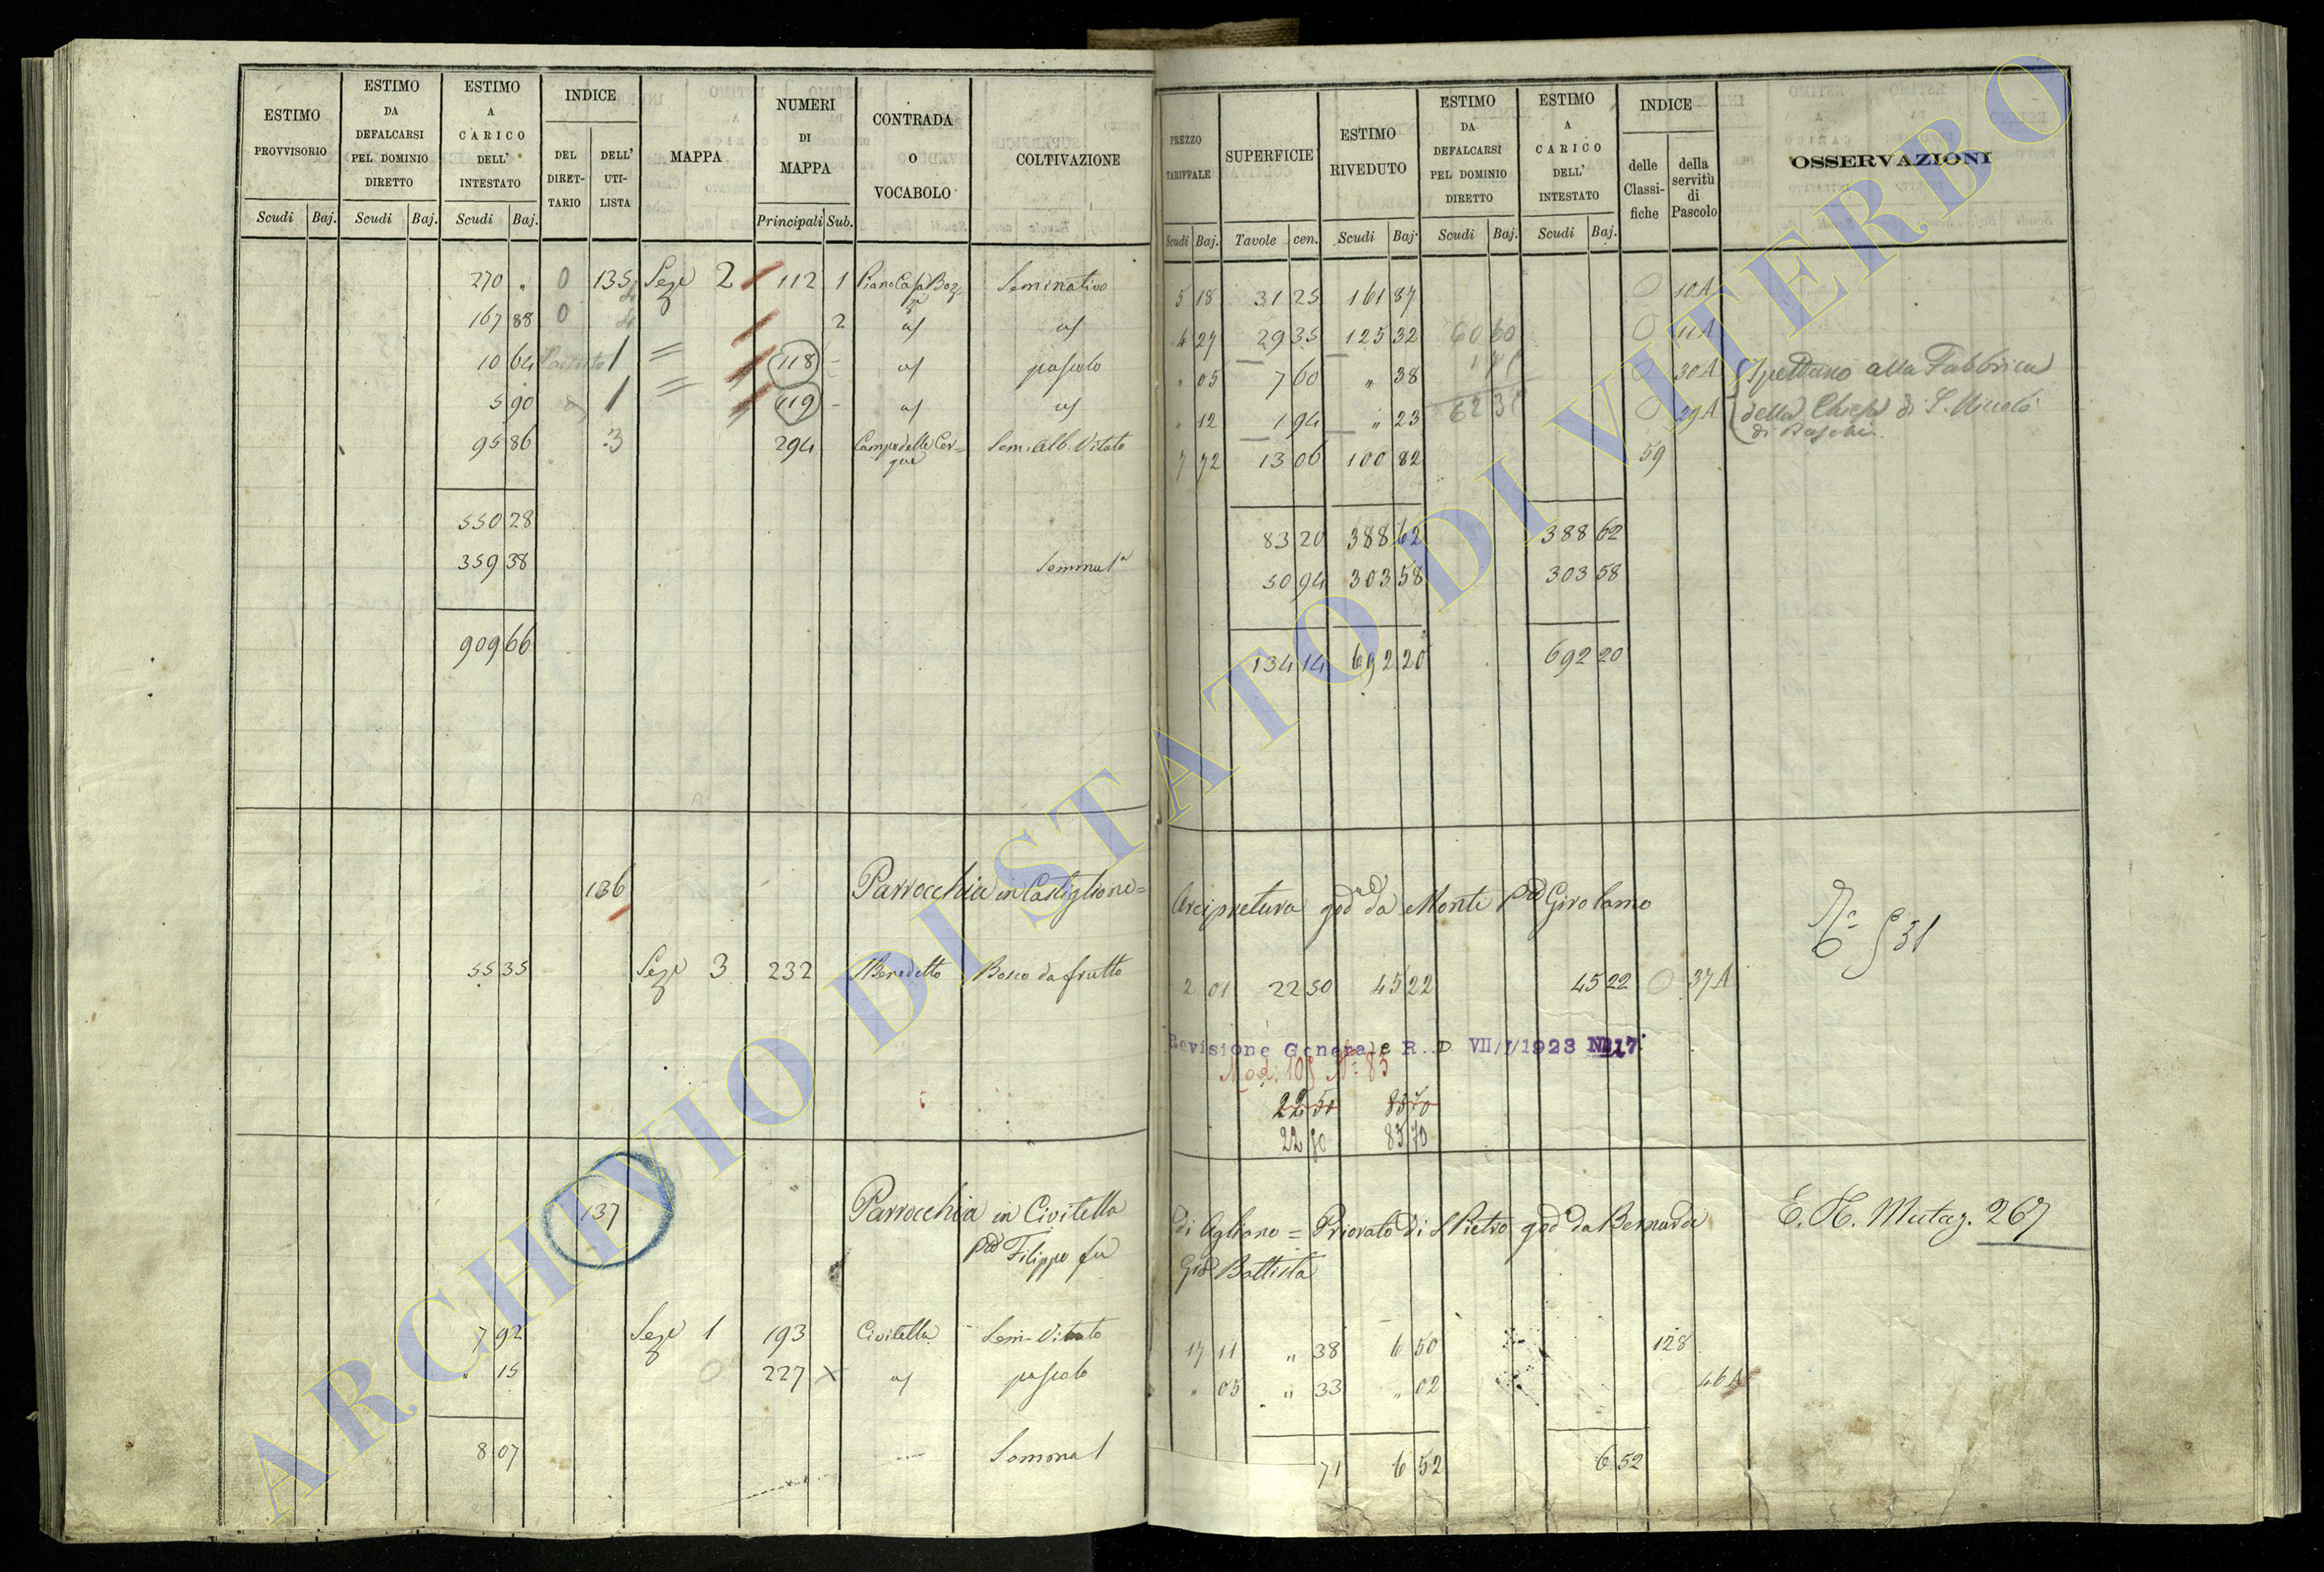 ESTIMO PROVVISORIO | ESTIMO DA DEFALCARSI PEL DOMINIO DIRETTO | ESTIMO A CARICO DELL' INTESTATO | INDICE | MAPPA | NUMERI DI MAPPA | CONTRADA O VOCABOLO | COLTIVAZIONE | PREZZO TARIFFALE | SUPERFICIE | ESTIMO RIVEDUTO | ESTIMO DA DEFALCARSI PEL DOMINIO DIRETTO | ESTIMO A CARICO DELL' INTESTATO | INDICE | OSSERVAZIONI
DEL DIRETTARIO | DELL' UTILISTA | delle Classifiche | della servitù di Pascolo
Scudi | Baj. | Scudi | Baj. | Scudi | Baj. | Principali | Sub. | Scudi | Baj. | Tavole | cen. | Scudi | Baj. | Scudi | Baj. | Scudi | Baj.
270 | " | 0 | 135 | Seze 2 | 112 | 1 | Piano Casa | Seminativo | 5 | 18 | 31 | 25 | 161 | 87 | 0 | 10A
167 | 88 | 0 | 2 | 4 | 27 | 29 | 35 | 125 | 32 | 60 | 60 | 0 | 11A
10 | 64 | 1 | 118 | - | pascolo | " | 05 | 7 | 60 | " | 38 | 0 | 30A | Spettano alla Fabbrica
5 | 90 | 1 | 119 | - | " | 12 | 1 | 94 | " | 23 | 62 | 31 | 0 | 29A | della Chiesa di S. Nicolò
di Baschi
95 | 86 | 3 | 294 | Campo delle Cerque | Sem. Alb. Vitato | 7 | 72 | 13 | 06 | 100 | 82 | 59
550 | 28 | 83 | 20 | 388 | 62 | 388 | 62
359 | 38 | Somma 1ª | 50 | 94 | 303 | 58 | 303 | 58
909 | 66 | 134 | 14 | 692 | 20 | 692 | 20
136 | Parrocchia in Castiglione = Arcipretura god da Monti Girolamo
§ 31
55 | 35 | Seze 3 | 232 | Benedetto | Bosco da frutto | 2 | 01 | 22 | 50 | 45 | 22 | 45 | 22 | 0 | 37A
Revisione Generale R. D. VII/1/1923 N.17.
Mod. 109 N° 85
22 | 50 | 83 | 70
22 | 50 | 83 | 70
137 | Parrocchia in Civitella di Agliano = Priorato di S Pietro god da Bernardi | 267
Filippo fu Gio Battista
7 | 92 | Seze 1 | 193 | Civitella | Sem. Vitato | 17 | 11 | " | 38 | 6 | 50 | 128
" | 15 | 0 | 227 | X | pascolo | " | 05 | " | 33 | " | 02 | 46A
8 | 07 | Somma | 71 | 6 | 52 | 6 | 52
ARCHIVIO DI STATO DI VITERBO